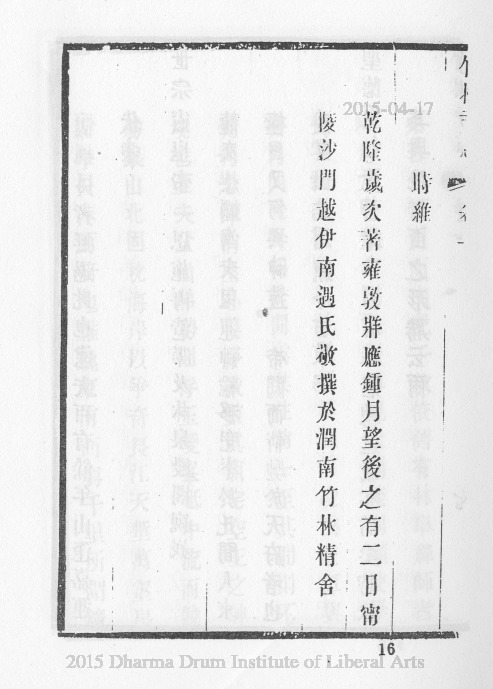 時維
乾隆歲次著雍敦牂應鍾月望後之有二日甯
陵沙門越伊南遇氏敬撰於潤南竹林精舍
2015-04-17
16
2015 Dharma Drum Institute of Liberal Arts